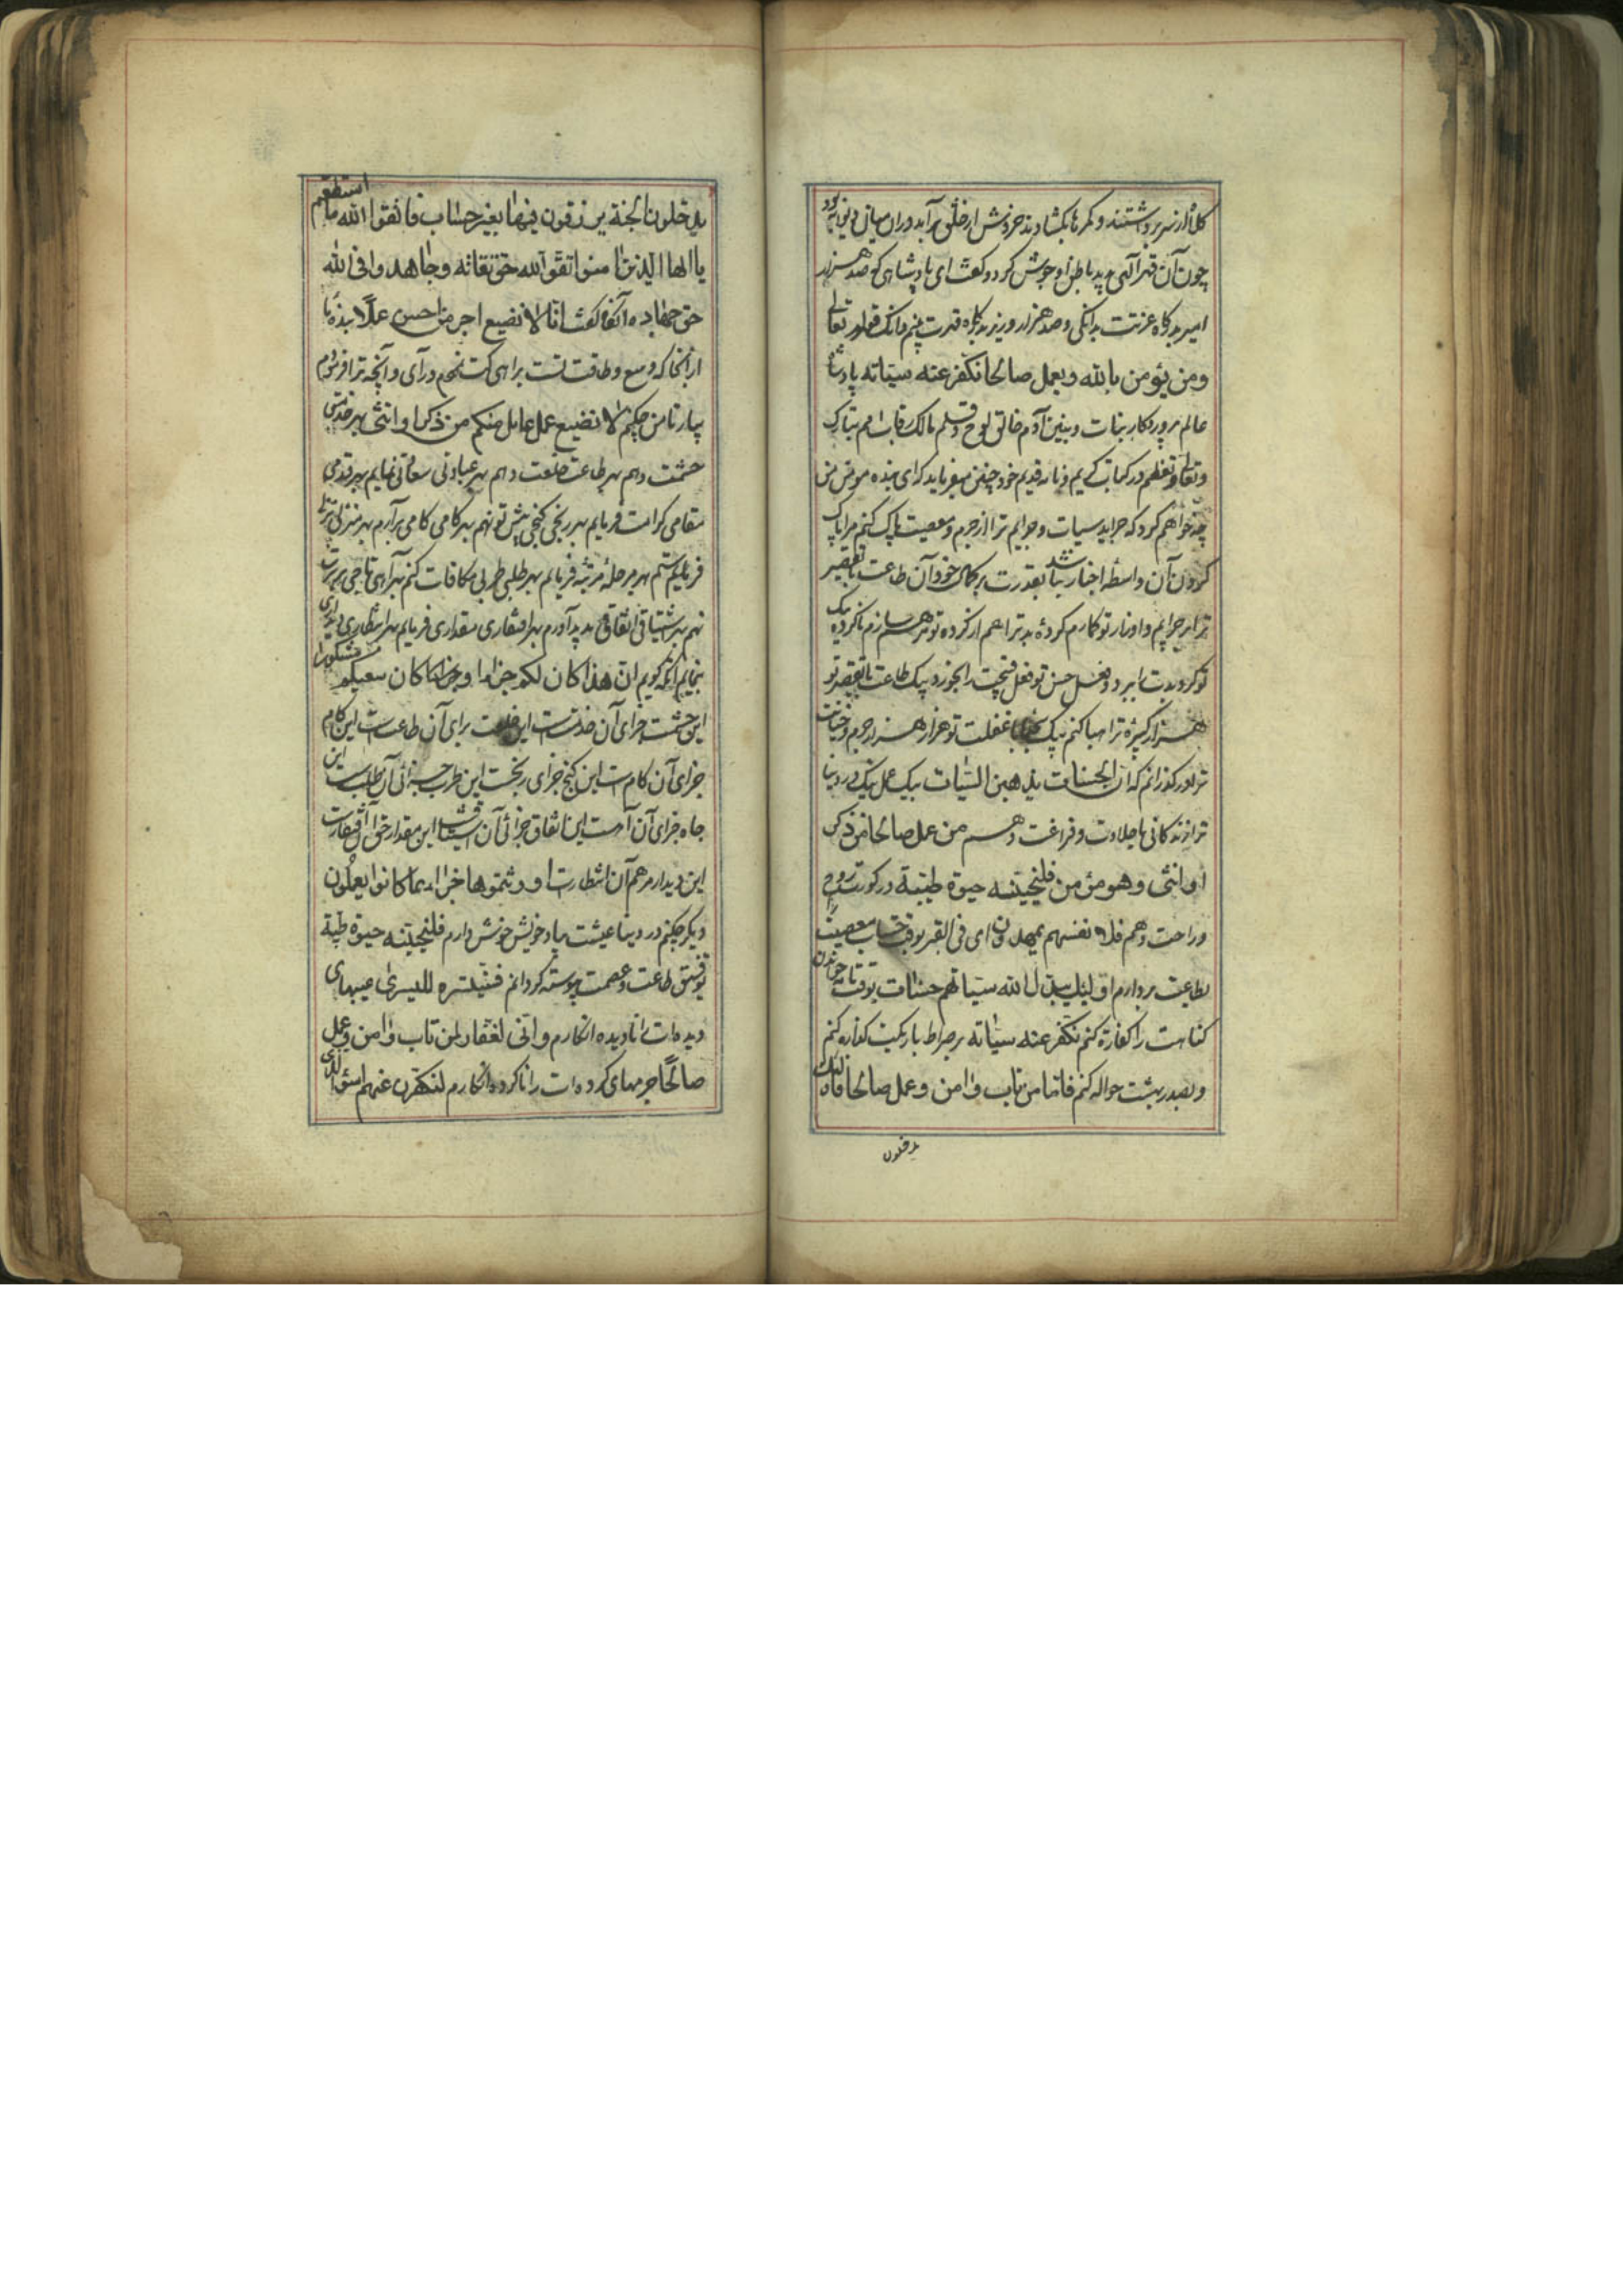 کلاه از سر برداشتند و کمرها بکشادند خروش از خلق برآید در آن میان
چون آن قهر الهی بدید باطن او جوش کرد و گفت ای پادشاهی که صد هزار
امیر بدرگاه عزتت و صد هزار وزیر بدرگاه قدرت قوله تعالی
ومن یؤمن بالله ویعمل صالحا نکفر عنه سیّاته پادشاه
عالم پروردکار بنات و بنین آدم خالق لوح و قلم مالک رقاب امم تبارک
وتعالی وتعظم در کتاب کریم و نامه قدیم خود چنین میفرماید که ای بنده مومن من
چه خواهم کرد که جراید سیات و جرایم ترا از جرم و معصیت پاک کنم مرا پاک
کردن آن واسطهٔ اخبار بقدرت برکمال خود آن طاعت با تقصیر
ترا بر جرایم و اوزار تو کارم کردهٔ بد ترا هم از کرده تو سازم ناکرده
تو کرد بدت را ببرد و فعل حسن تو فعل قبیحت را بخورد یک طاعت با تقصیر تو
هزار کبیره ترا هبا کنم یک با غفلت تو هزار هزار جرم و خیانت
ترا در کذرانم که ان الحسنات یذهبن السّیّات بیک عمل نیک در دنیا
ترا زندکانی با حلاوت و فراغت دهم من عمل صالحا من ذکر
او انثی وهو مؤمن فلنحیینه حیوة طیّبة در کورت روح
وراحت دهم فلا نفسهم یمهدون ای فی القبر بوقت حساب معصیتت را
بطاعت بردارم اولئک یبدّل الله سیّاتهم حسنات بوقت نامه خواندن
کناهت را کفارة کنم نکفر عنه سیّاته بر صراط باریکت کنم
و بصدر بهشت حواله کنم فاما من تاب وامن وعمل صالحا فاولئک
یدخلون
یدخلون الجنة یرزقون فیها بغیر حساب فاتقوا الله ما استطعتم
یا ایها الذین امنوا اتقوا الله حق تقاته وجاهدوا فی الله
حق جهاده آنکه گفت انا لا نضیع اجر من احسن عملًا بنده ما
از آنجا که وسع و طاقت تست براهی که درآی و آنچه ترا فرمودم
بیار تا من چکنم لا نضیع عمل عامل منکم من ذکر او انثی بهر خدمتی
حشمت دهم بهر طاعت خلعت دهم بهر عبادتی سعادتی نمایم بهر قدمی
مقامی کرامت فرمایم بهر رنجی کنجی پیش تو نهم بهر کامی کامی برآرم بهر منزلی
فرمایم بهر مرحلهٔ مرتبه فرمایم بهر طلبی طربی مکافات کنم بهر آهی تاجی بر سرت
نهم بهر اشتیاقی اتفاقی پدید آورم بهر افتقاری مقداری فرمایم بهر انتظاری دیداری
بنمایم آنکه کویم ان هذا کان لکم جزاء وکان سعیکم مشکورا
این حشمت جزای آن خدمت است این خلعت برای آن طاعت است این کام
جزای آن کام است این کنج جزای رنجست این طرب جزائی آن طلب است این
جاه جزای آن آه است این اتفاق جزائی آن اشتیاق است این مقدار حق آن افتقارست
این دیدار مرهم آن انتظارست اورثتموها جزاء بما کانوا یعملون
دیکر چکنم در دنیا عیشت بیاد خویش خوش دارم فلنحیینه حیوة طیبة
توفیق طاعت و عصمت پیوسته کردانم فسنیسّره للیسری عیبهای
دیده‌ات را نادیده انکارم وانی لغفار لمن تاب وامن وعمل
صالحًا جرمهای کرده‌ات را ناکرده انکارم لنکفرن عنهم اسوا الذی